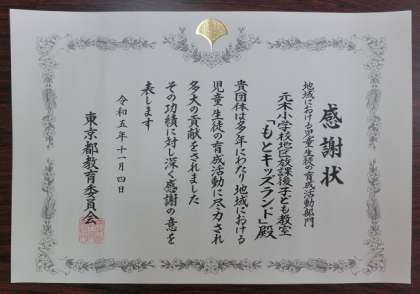 感謝状
地域における児童・生徒の育成活動部門
元木小学校地区放課後子ども教室
「もとキッズランド」殿
貴団体は多年にわたり地域における
児童・生徒の育成活動に尽力され
多大の貢献をされました
その功績に対し深く感謝の意を
表します
令和五年十一月四日
東京都教育委員会